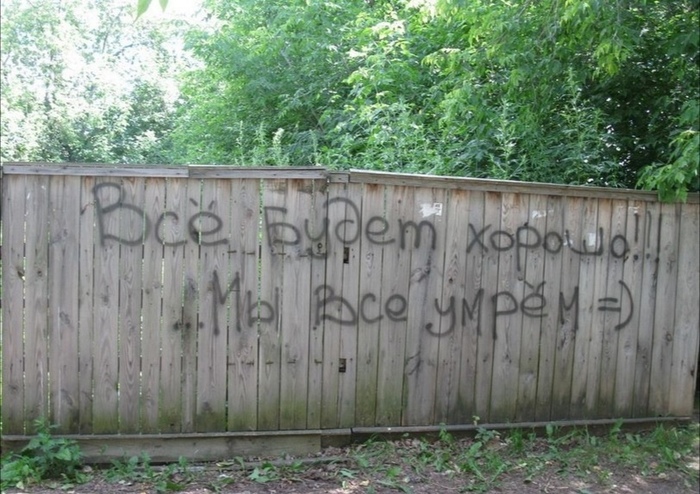 Всё будет хорошо!!!
...Мы все умрём =)